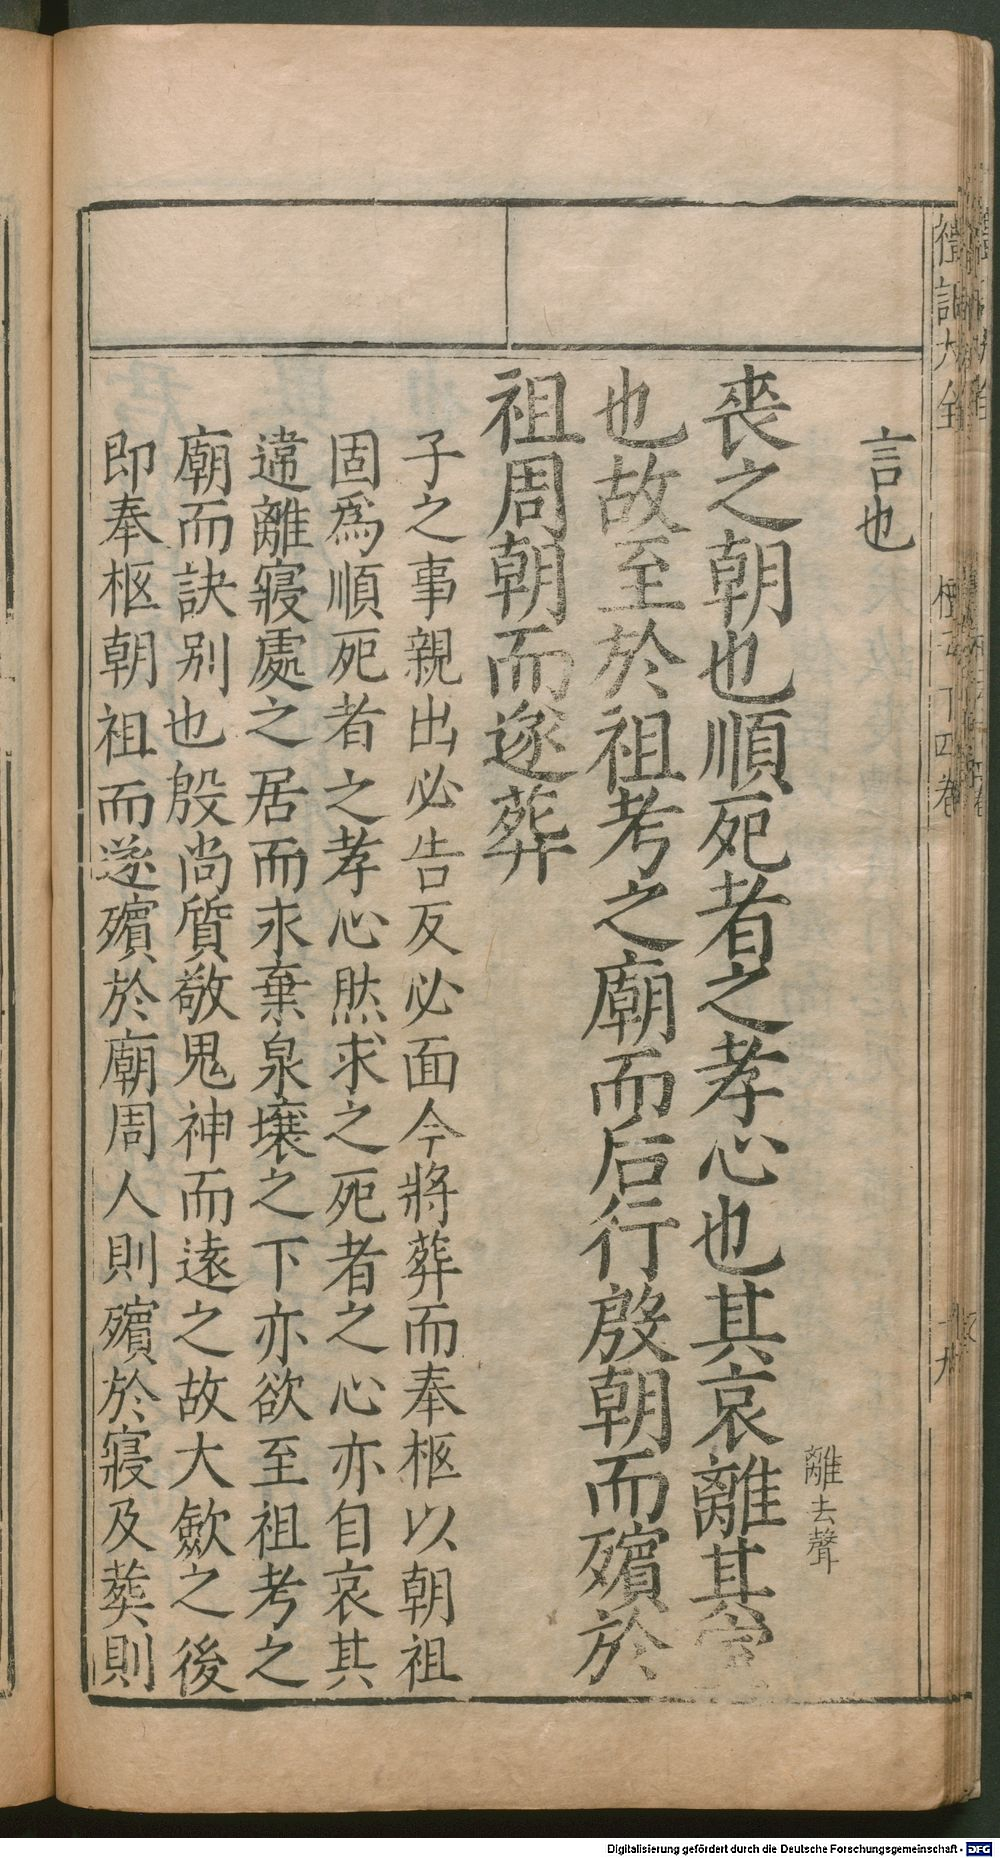 言也
喪之朝也順死者之孝心也其哀離其室
離去聲
也故至於祖考之廟而后行殷朝而殯於
祖周朝而遂葬
子之事親出必告反必面今將葬而奉柩以朝祖
固爲順死者之孝心然求之死者之心亦自哀其
違離寢處之居而永棄泉壤之下亦欲至祖考之
廟而訣別也殷尚質敬鬼神而遠之故大歛之後
即奉柩朝祖而遂殯於廟周人則殯於寢及葬則
Digitalisierung gefördert durch die Deutsche Forschungsgemeinschaft - DFG